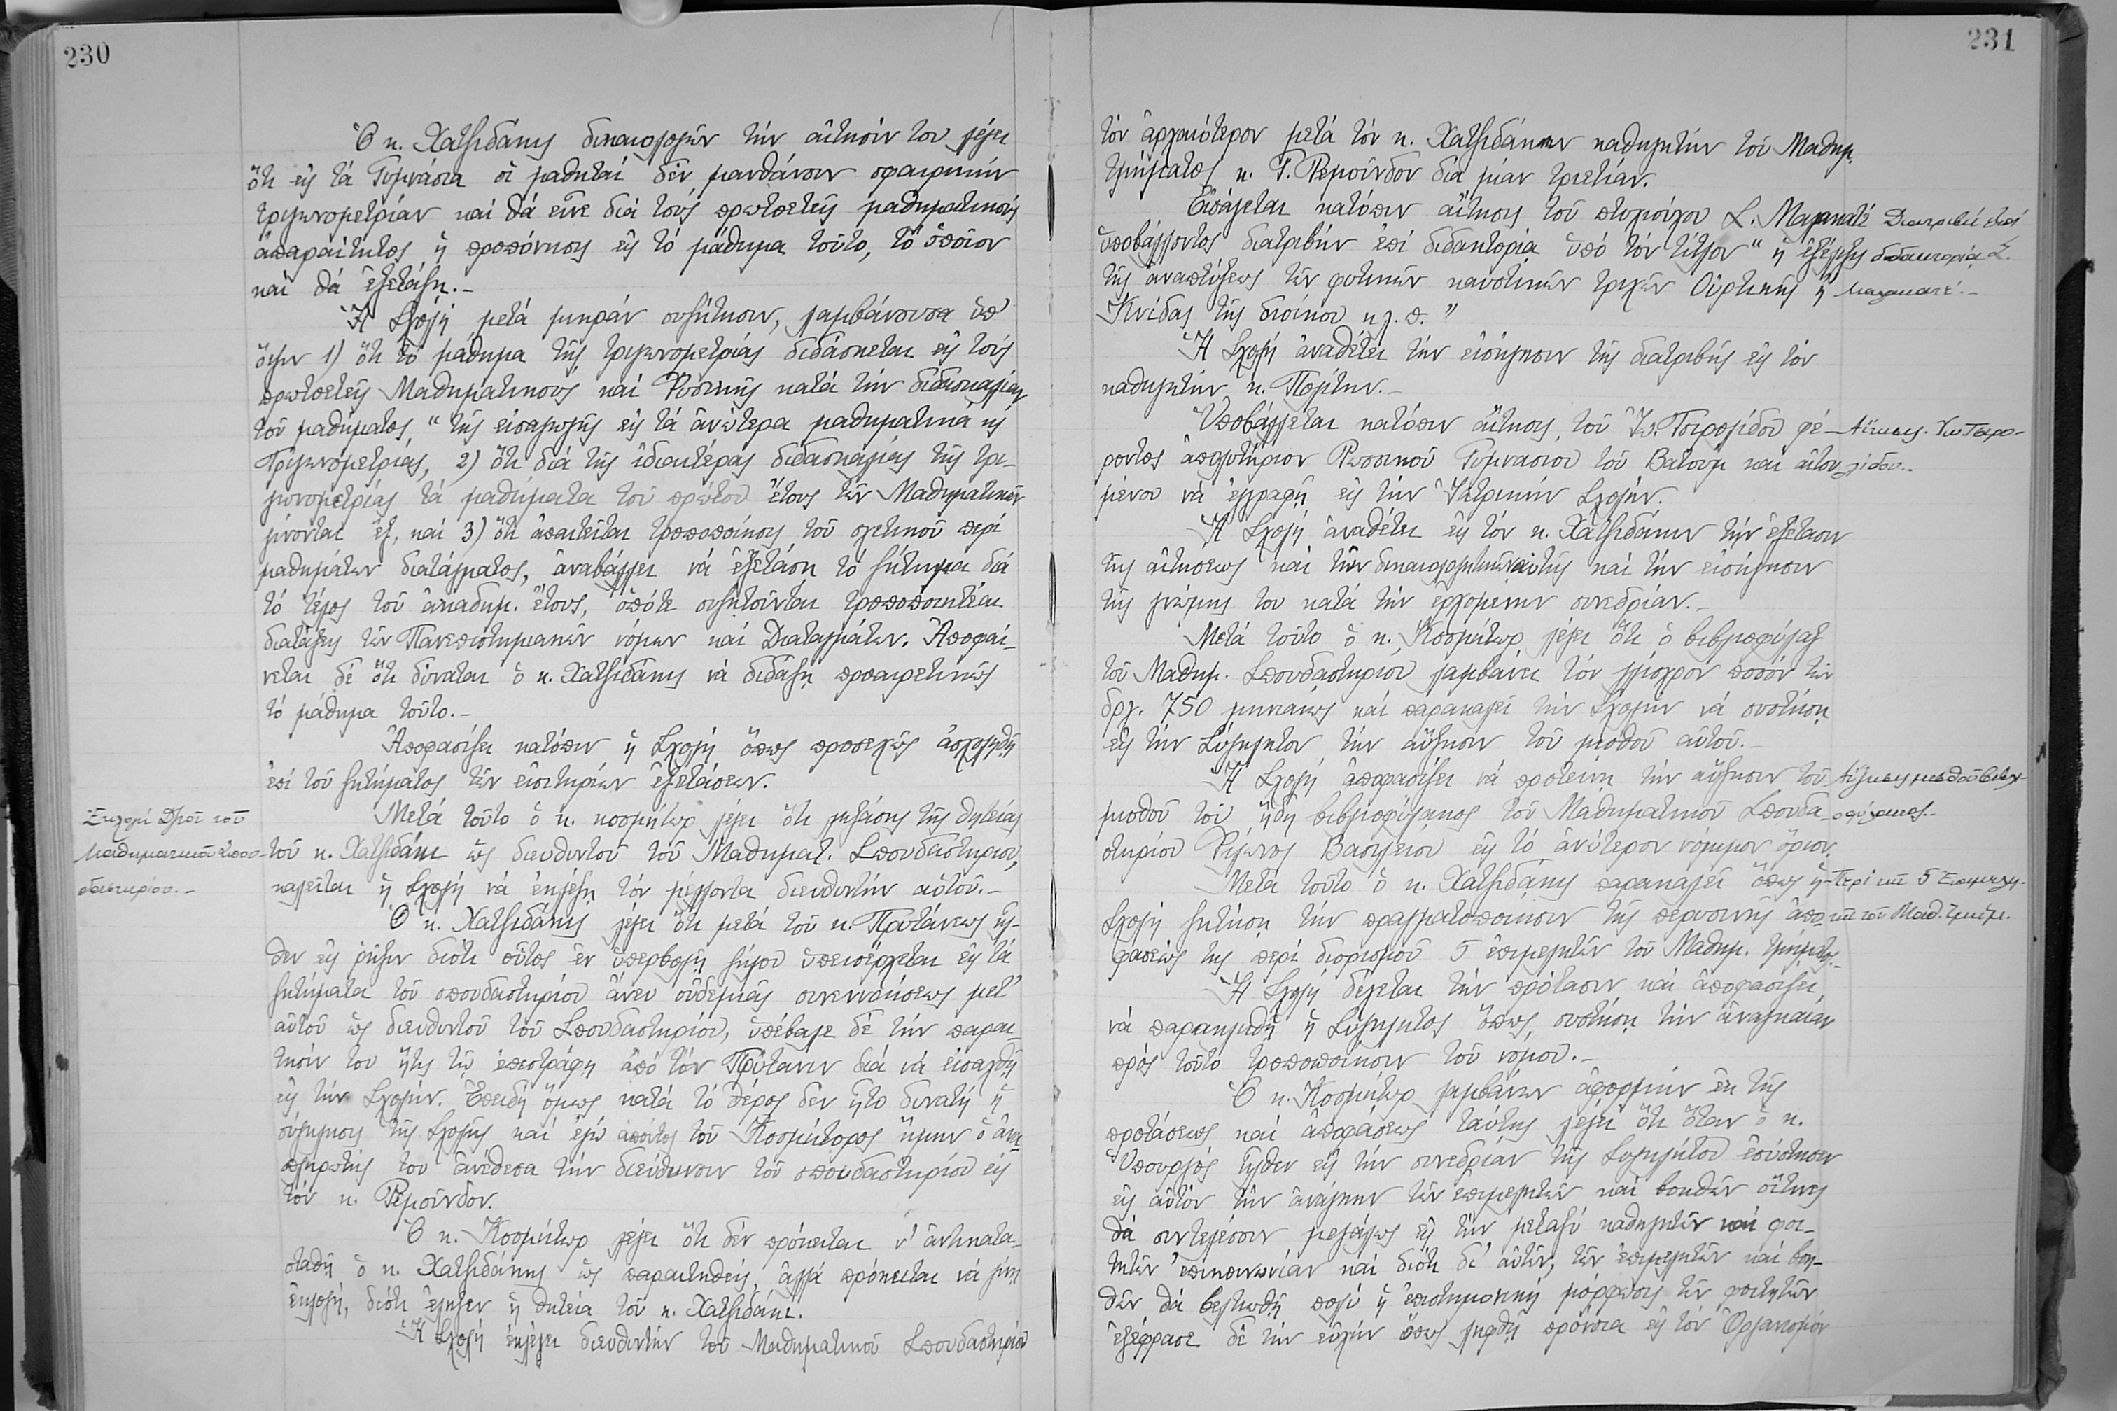 230
Ὁ κ. Χατζιδάκις δικαιολογῶν τὴν αἴτησίν του λέγει
ὅτι εἰς τὰ Γυμνάσια οἱ μαθηταὶ δὲν μανθάνουν σφαιρικὴν
τριγωνομετρίαν καὶ θὰ εἶνε διὰ τοὺς πρωτοετεῖς μαθηματικοὺς
ἀπαραίτητος ἡ προπόνησις εἰς τὸ μάθημα τοῦτο, τὸ ὁποῖον
καὶ θὰ ἐξετάζῃ.-
Ἡ Σχολὴ μετὰ μικρὰν συζήτησιν, λαμβάνουσα ὑπ'
ὄψιν 1) ὅτι τὸ μάθημα τῆς τριγωνομετρίας διδάσκεται εἰς τοὺς
πρωτοετεῖς Μαθηματικοὺς καὶ Φυσικοὺς κατὰ τὴν διδασκαλίαν
τοῦ μαθήματος "τῆς εἰσαγωγῆς εἰς τὰ ἀνώτερα μαθηματικὰ
Τριγωνομετρίας, 2) ὅτι διὰ τῆς ἰδιαιτέρας διδασκαλίας τῆς τρι-
γωνομετρίας τὰ μαθήματα τοῦ πρώτου ἔτους τῶν Μαθηματικῶν
γίνονται ἕξ, καὶ 3) ὅτι ἀπαιτεῖται τροποποίησις τοῦ σχετικοῦ περὶ
μαθημάτων διατάγματος, ἀναβάλλει νὰ ἐξετάσῃ τὸ ζήτημα διὰ
τὸ τέλος τοῦ ἀκαδημ. ἔτους, ὁπότε συζητοῦνται τροποποιητέαι
διατάξεις τῶν Πανεπιστημιακῶν νόμων καὶ Διαταγμάτων. Ἀποφαί-
νεται δὲ ὅτι δύναται ὁ κ. Χατζιδάκις νὰ διδάξῃ προαιρετικῶς
τὸ μάθημα τοῦτο.-
Ἀποφασίζει κατόπιν ἡ Σχολὴ ὅπως προσεχῶς ἀσχοληθῇ
ἐπὶ τοῦ ζητήματος τῶν εἰσιτηρίων ἐξετάσεων.
Ἐκλογὴ Δ/τοῦ τοῦ
Μαθηματικοῦ Σπου-
δαστηρίου.-
Μετὰ τοῦτο ὁ κ. κοσμήτωρ λέγει ὅτι ληξάσης τῆς θητείας
τοῦ κ. Χατζιδάκι ὡς διευθυντοῦ τοῦ Μαθηματ. Σπουδαστηρίου,
καλεῖται ἡ Σχολὴ νὰ ἐκλέξῃ τὸν μέλλοντα διευθυντὴν αὐτοῦ.-
Ὁ κ. Χατζιδάκις λέγει ὅτι μετὰ τοῦ κ. Πρυτάνεως ἦλ-
θεν εἰς ῥῆξιν διότι οὗτος ἐν ὑπερβολῇ ζήλου ὑπεισέρχεται εἰς τὰ
ζητήματα τοῦ σπουδαστηρίου ἄνευ οὐδεμιᾶς συνεννοήσεως μετ'
αὐτοῦ ὡς διευθυντοῦ τοῦ Σπουδαστηρίου, ὑπέβαλε δὲ τὴν παραί-
τησίν του ἥτις τῷ ἐπεστράφη ἀπὸ τὸν Πρύτανιν διὰ νὰ εἰσαχθῇ
εἰς τὴν Σχολήν. Ἐπειδὴ ὅμως κατὰ τὸ θέρος δὲν ἦτο δυνατὴ ἡ
σύγκλησις τῆς Σχολῆς καὶ ἐγὼ ἀπόντος τοῦ Κοσμήτορος ἤμην ὁ ἀνα-
πληρωτής του ἀνέθεσα τὴν διεύθυνσιν τοῦ σπουδαστηρίου εἰς
τὸν κ. Ρεμοῦνδον.
Ὁ κ. Κοσμήτωρ λέγει ὅτι δὲν πρόκειται ν' ἀντικατα-
σταθῇ ὁ κ. Χατζιδάκις ὡς παραιτηθείς, ἀλλὰ πρόκειται νὰ γίνῃ
ἐκλογή, διότι ἔληξεν ἡ θητεία τοῦ κ. Χατζιδάκι.
Ἡ Σχολὴ ἐκλέγει διευθυντὴν τοῦ Μαθηματικοῦ Σπουδαστηρίου
231
τὸν ἀρχαιότερον μετὰ τὸν κ. Χατζιδάκιν καθηγητὴν τοῦ Μαθημ.
τμήματος κ. Γ. Ρεμοῦνδον διὰ μίαν τριετίαν.
Εἰσάγεται κατόπιν αἴτησις τοῦ πτυχιούχου Σ. Μαγκατέ
ὑποβάλλοντος διατριβὴν ἐπὶ διδακτορίᾳ ὑπὸ τὸν τίτλον "ἡ ἐξέλιξις
τῆς ἀναπτύξεως τῶν φυτικῶν καυστικῶν τριχῶν Οὐρτικῆς ἢ
Κνίδας τῆς διοίκου κ.λ.π."
Διατριβὴ ἐπὶ
διδακτορίᾳ Σ.
Μαγκατέ.-
Ἡ Σχολὴ ἀναθέτει τὴν εἰσήγησιν τῆς διατριβῆς εἰς τὸν
καθηγητὴν κ. Πολίτην.-
Ὑποβάλλεται κατόπιν αἴτησις τοῦ Ἰω. Τσιρολίδου φέ-
ροντος ἀπολυτήριον Ρωσσικοῦ Γυμνασίου τοῦ Βατοὺμ καὶ αἰτου-
μένου νὰ ἐγγραφῇ εἰς τὴν Ἰατρικὴν Σχολήν.
Αἴτησις Ἰω Τσιρο-
λίδου.-
Ἡ Σχολὴ ἀναθέτει εἰς τὸν κ. Χατζιδάκιν τὴν ἐξέτασιν
τῆς αἰτήσεως καὶ τῶν δικαιολογητικῶν αὐτῆς καὶ τὴν εἰσήγησιν
τῆς γνώμης του κατὰ τὴν ἐρχομένην συνεδρίαν.-
Μετὰ τοῦτο ὁ κ. Κοσμήτωρ λέγει ὅτι ὁ βιβλιοφύλαξ
τοῦ Μαθημ. Σπουδαστηρίου λαμβάνει τὸν γλίσχρον ποσὸν τῶν
δρχ. 750 μηνιαίως καὶ παρακαλεῖ τὴν Σχολὴν νὰ συστήσῃ
εἰς τὴν Σύγκλητον τὴν αὔξησιν τοῦ μισθοῦ αὐτοῦ.-
Ἡ Σχολὴ ἀποφασίζει νὰ προτείνῃ τὴν αὔξησιν τοῦ
μισθοῦ τοῦ ἤδη βιβλιοφύλακος τοῦ Μαθηματικοῦ Σπουδα-
στηρίου Φίλωνος Βασιλείου εἰς τὸ ἀνώτερον νόμιμον ὅριον.
Αὔξησις μισθοῦ βιβλι-
οφύλακος.-
Μετὰ τοῦτο ὁ κ. Χατζιδάκις παρακαλεῖ ὅπως ἡ
Σχολὴ ζητήσῃ τὴν πραγματοποίησιν τῆς περυσινῆς ἀπο-
φάσεώς της περὶ διορισμοῦ 5 ἐπιμελητῶν τοῦ Μαθημ. τμήματος.-
Περὶ τῶν 5 Ἐπιμελη-
τῶν τοῦ Μαθ. τμήμ.
Ἡ Σχολὴ δέχεται τὴν πρότασιν καὶ ἀποφασίζει
νὰ παρακληθῇ ἡ Σύγκλητος ὅπως συστήσῃ τὴν ἀναγκαίαν
πρὸς τοῦτο τροποποίησιν τοῦ νόμου.-
Ὁ κ. Κοσμήτωρ λαμβάνων ἀφορμὴν ἐκ τῆς
προτάσεως καὶ ἀποφάσεως ταύτης λέγει ὅτι ὅταν ὁ κ.
Ὑπουργὸς ἦλθεν εἰς τὴν συνεδρίαν τῆς Συγκλήτου ἐσύστησεν
εἰς αὐτὸν τὴν ἀνάγκην τῶν ἐπιμελητῶν καὶ βοηθῶν οἵτινες
θὰ συντελέσουν μεγάλως εἰς τὴν μεταξὺ καθηγητῶν καὶ φοι-
τητῶν ἐπικοινωνίαν καὶ διότι δι' αὐτῶν, τῶν ἐπιμελητῶν καὶ βοη-
θῶν θὰ βελτιωθῇ πολὺ ἡ ἐπιστημονικὴ μόρφωσις τῶν φοιτητῶν
ἐξέφρασε δὲ τὴν εὐχὴν ὅπως ληφθῇ πρόνοια εἰς τὸν Ὀργανισμὸν